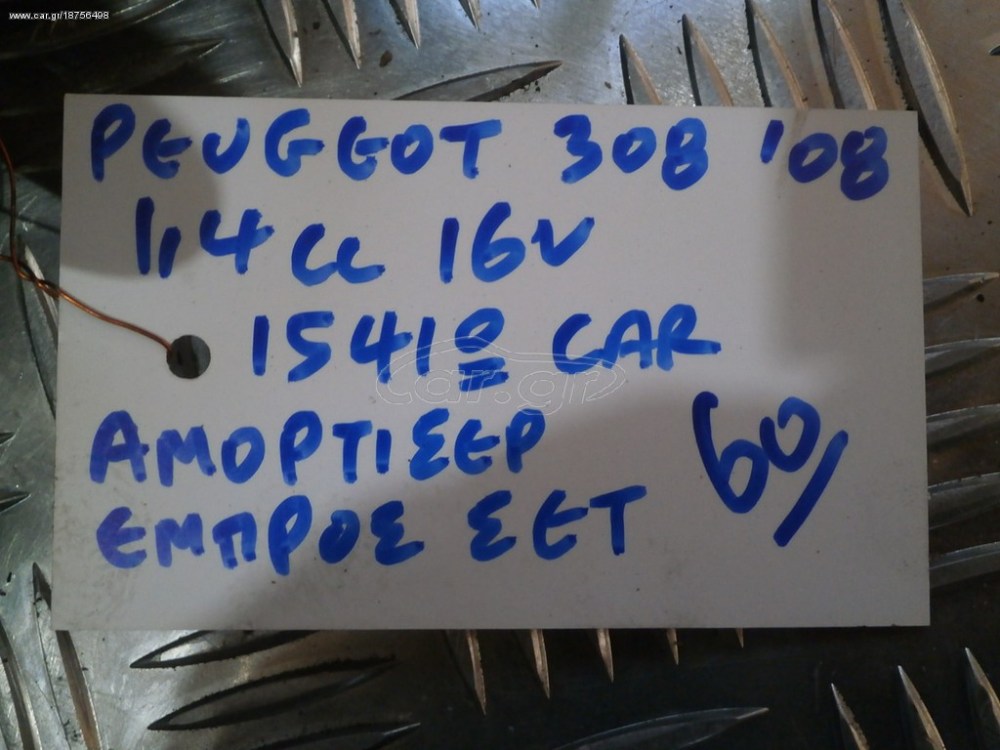 www.car.gr/18756498
PEUGEOT 308 '08
1,4 cc 16v
1541º CAR
car.gr
ΑΜΟΡΤΙΣΕΡ
ΕΜΠΡΟΣ ΣΕΤ
60/